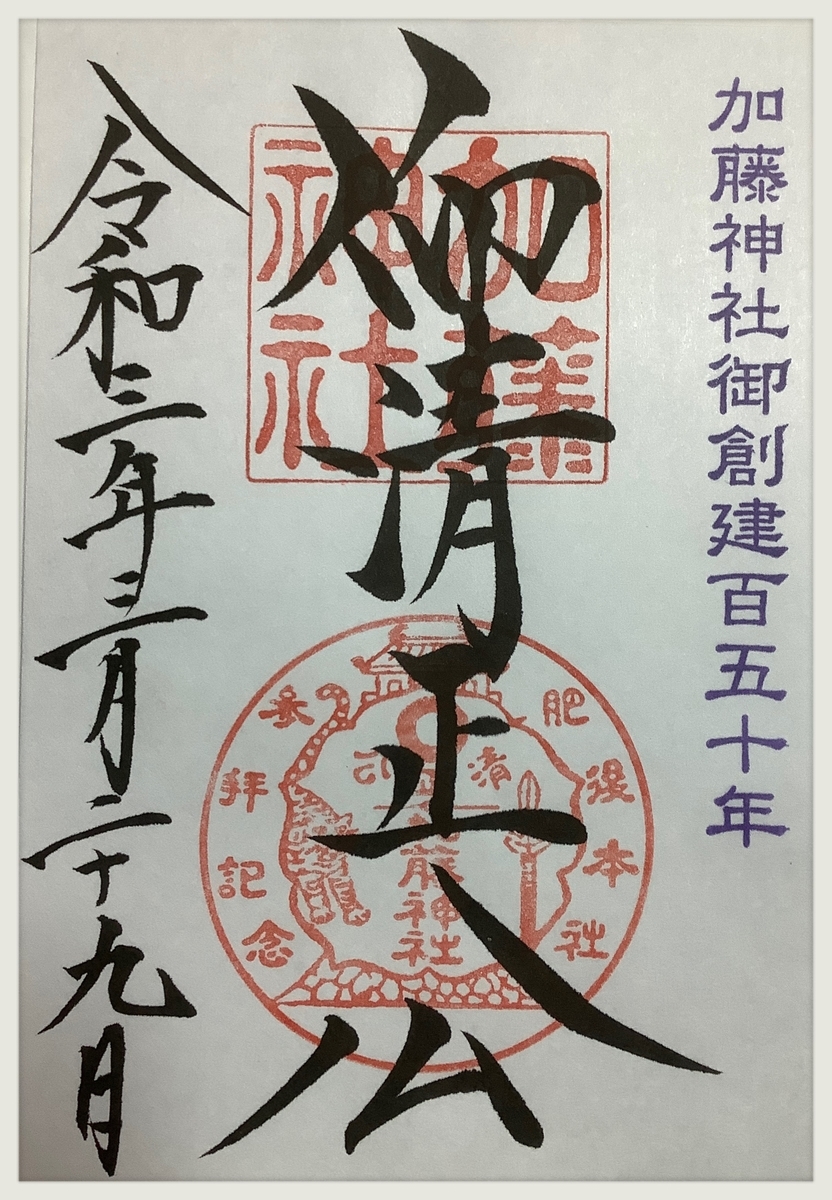 加藤神社御創建百五十年
仰清正公
加藤神社
肥後本社
参拝記念
清正公
加藤神社
令和三年三月二十九日